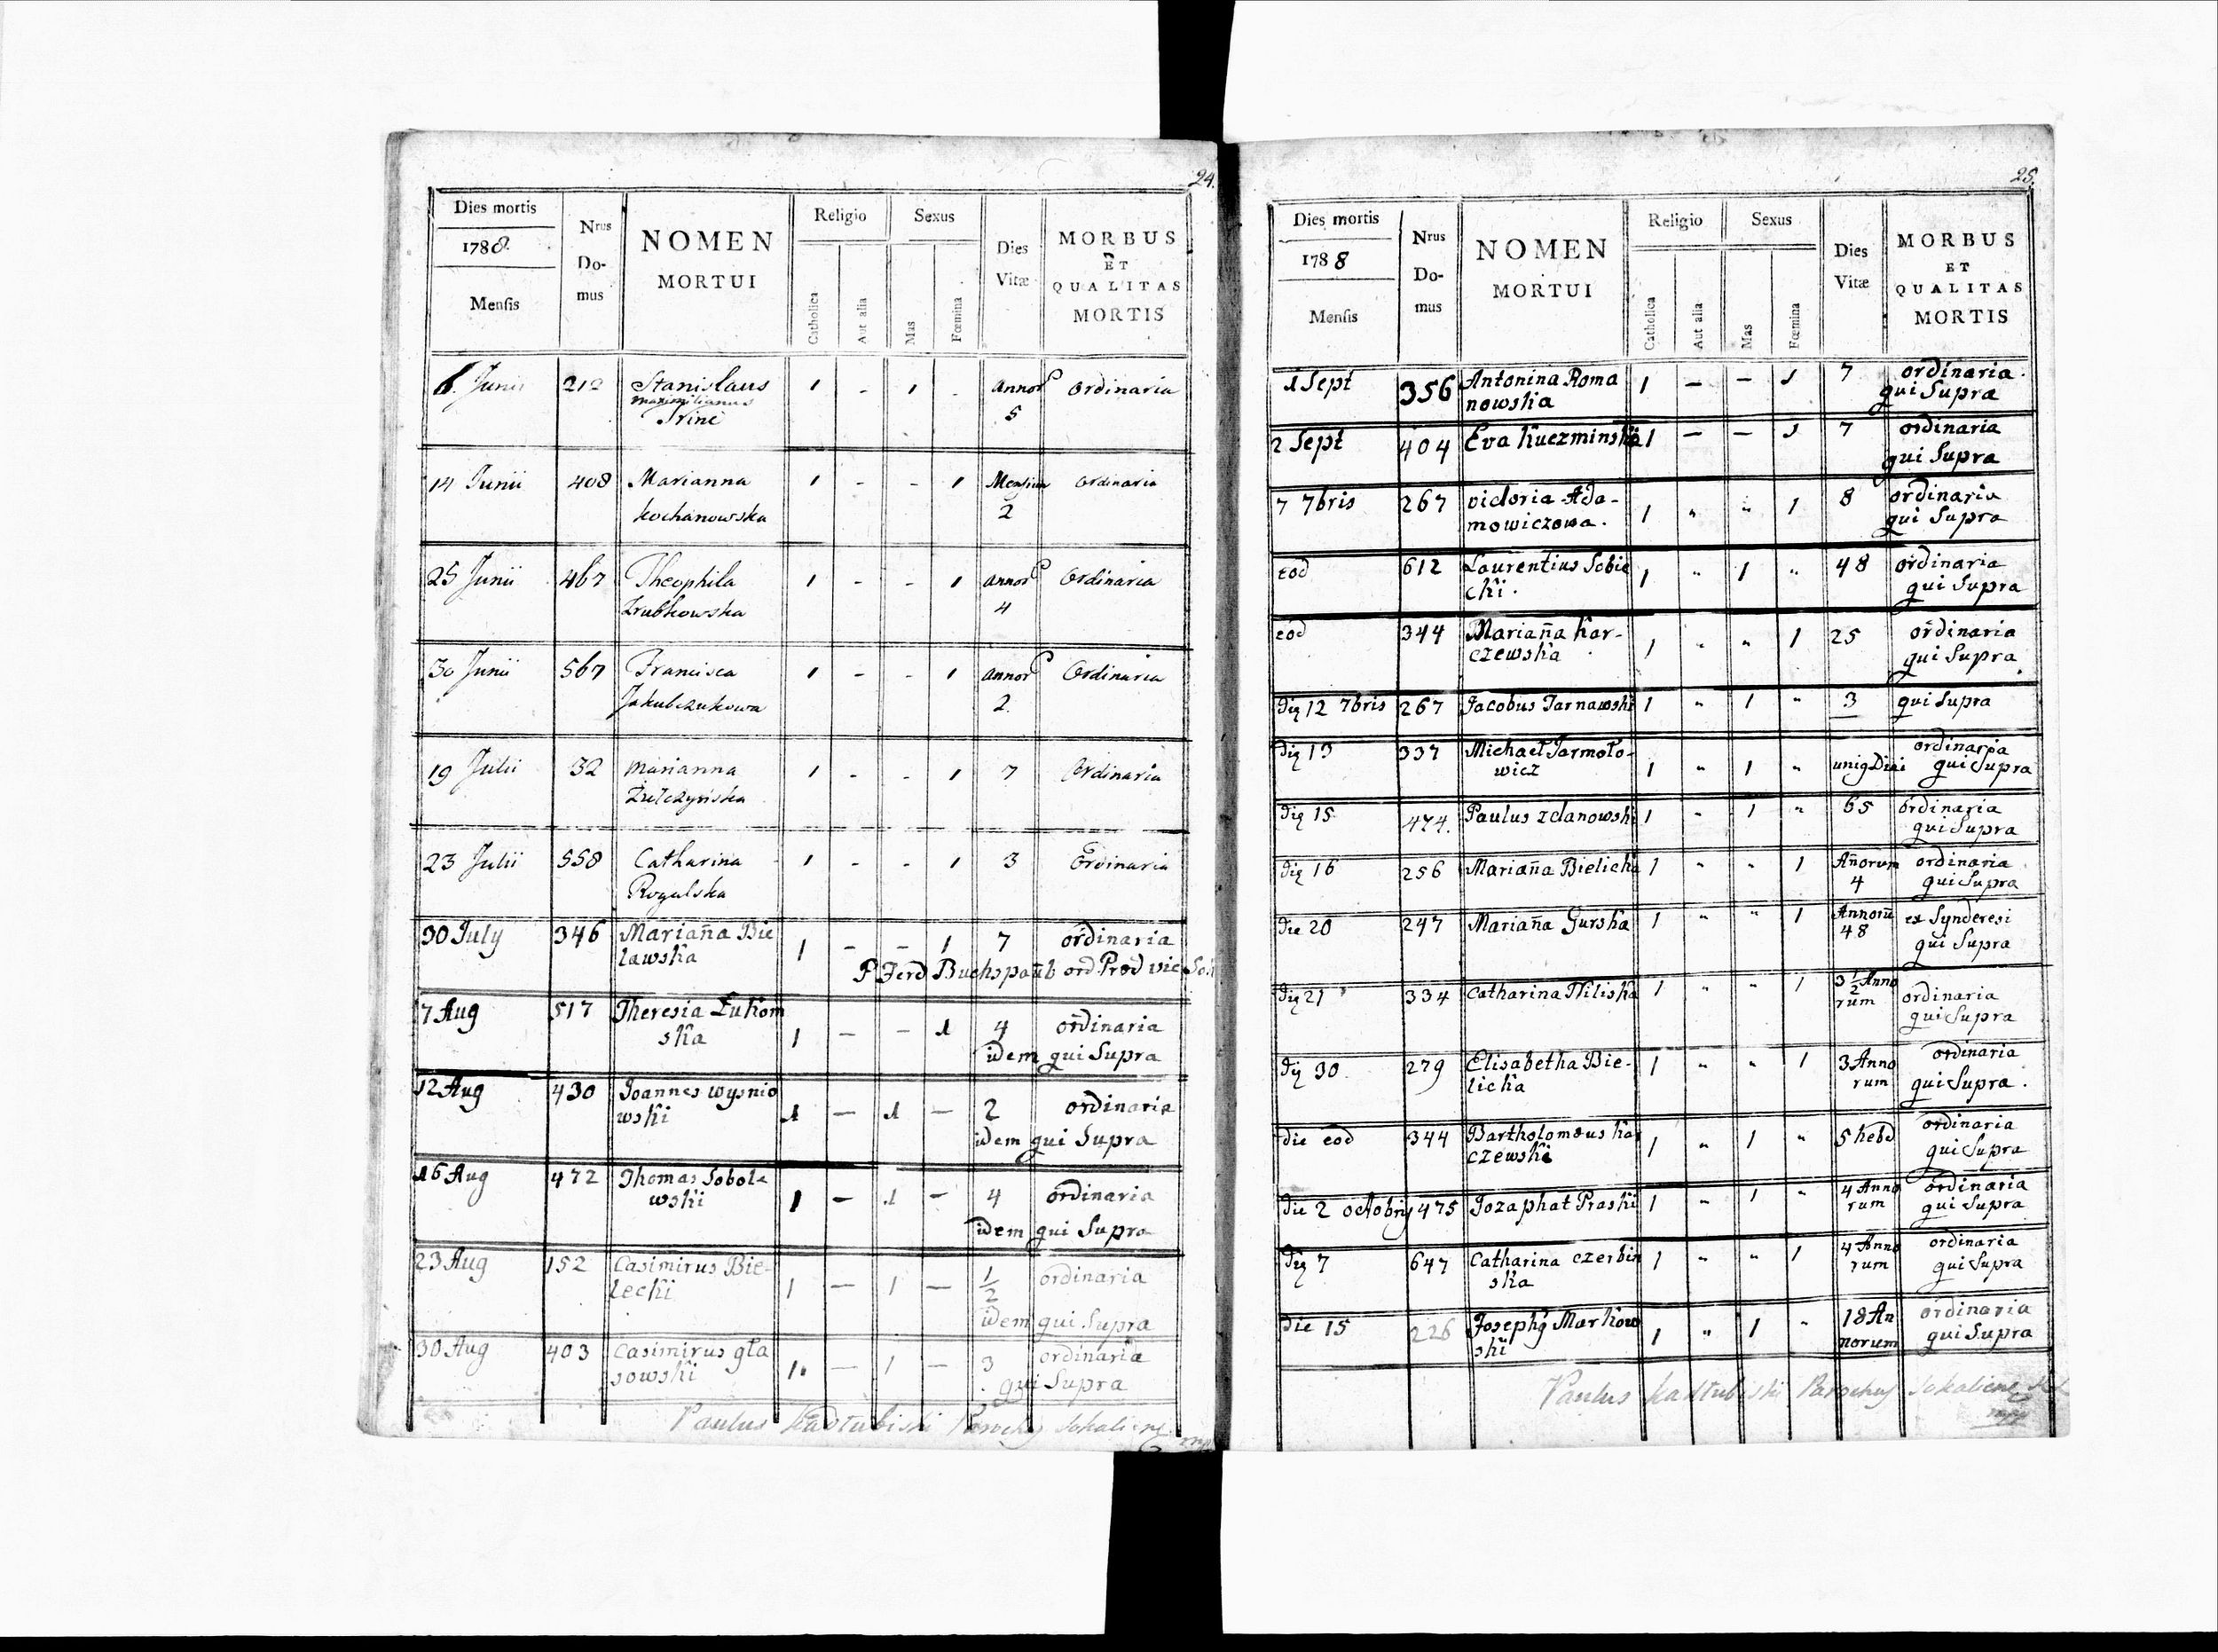 24.
Dies mortis
1788.
Mensis
Nrus
Do-
mus
NOMEN
MORTUI
Religio
Catholica
Aut alia
Sexus
Mas
Fœmina
Dies
Vitæ
MORBUS
ET
QUALITAS
MORTIS
6. Junii 212 Stanislaus 1 - 1 - annor Ordinaria
maximilianus
5
14 Junii 408 Marianna 1 - - 1 Mensium Ordinaria
Kochanowska 2
25 Junii 467 Theophila 1 - - 1 annor Ordinaria
Zrubkowska 4
30 Junii 567 Francisca 1 - - 1 annor Ordinaria
Jakubczukowa 2.
19 Julii 32 Marianna 1 - - 1 7 Ordinaria
23 Julii 558 Catharina 1 - - 1 3 Ordinaria
Rogulska
30 July 346 Mariana Bie 1 - - 1 7 ordinaria
lawska
P Ferd Buchspaub ord Præd vic
7 Aug 517 Theresia Łukom
ska 1 — - 1 4 ordinaria
idem qui Supra
12 Aug 430 Joannes wysnio
wski 1 — 1 — 2 ordinaria
idem qui Supra
16 Aug 472 Thomas Sobole
wski 1 — 1 — 4 ordinaria
idem qui Supra
23 Aug 152 Casimirus Bie-
lecki 1 — 1 — 1/2 ordinaria
idem qui Supra
30 Aug 403 Casimirus gła
sowski 1. — 1 — 3 ordinaria
qui Supra
Paulus Kadłubiski Parochus Sokaliens mp
25.
Dies mortis
1788
Mensis
Nrus
Do-
mus
NOMEN
MORTUI
Religio
Catholica
Aut alia
Sexus
Mas
Fœmina
Dies
Vitæ
MORBUS
ET
QUALITAS
MORTIS
1 Sept 356 Antonina Roma 1 — — 1 7 ordinaria.
nowska qui Supra
2 Sept 404 Eva Kuczminska 1 — — 1 7 ordinaria
qui Supra
7 7bris 267 victoria Ada- 1 " " 1 8 ordinaria
mowiczowa. qui Supra
eod 612 Laurentius Sobie 1 " 1 " 48 ordinaria
cki. qui Supra
eod 344 Mariaña Kar- 1 " " 1 25 ordinaria
czewska qui Supra
Die 12 7bris 267 Jacobus Tarnawski 1 " 1 " 3 qui Supra
Die 13 337 Michael Jarmoło- 1 " 1 " unius Diei ordinaria
wicz qui Supra
Die 15 474. Paulus zdanowski 1 " 1 " 65 ordinaria
qui Supra
Die 16 256 Mariaña Bielicka 1 " " 1 Añorum ordinaria
4 qui Supra
Die 20 247 Mariaña Gurska 1 " " 1 Annorũ ex Synderesi
48 qui Supra
Die 21 334 Catharina Piliska 1 " " 1 3 1/2 Anno
rum ordinaria
qui Supra
Die 30 279 Elisabetha Bie- 1 " " 1 3 Anno ordinaria
licka rum qui Supra.
Die eod 344 Bartholomæus Kar 1 " 1 " 5 hebd ordinaria
czewski qui Supra
Die 2 octobris 475 Jozaphat Praski 1 " 1 " 4 Anno ordinaria
rum qui Supra
Die 7 647 Catharina czerbin 1 " " 1 4 Anno ordinaria
ska rum qui Supra
Die 15 226 Josephus Markow 1 " 1 " 18 An ordinaria
ski norum qui Supra
Paulus Kadłubiski Parochus Sokaliens
mpp